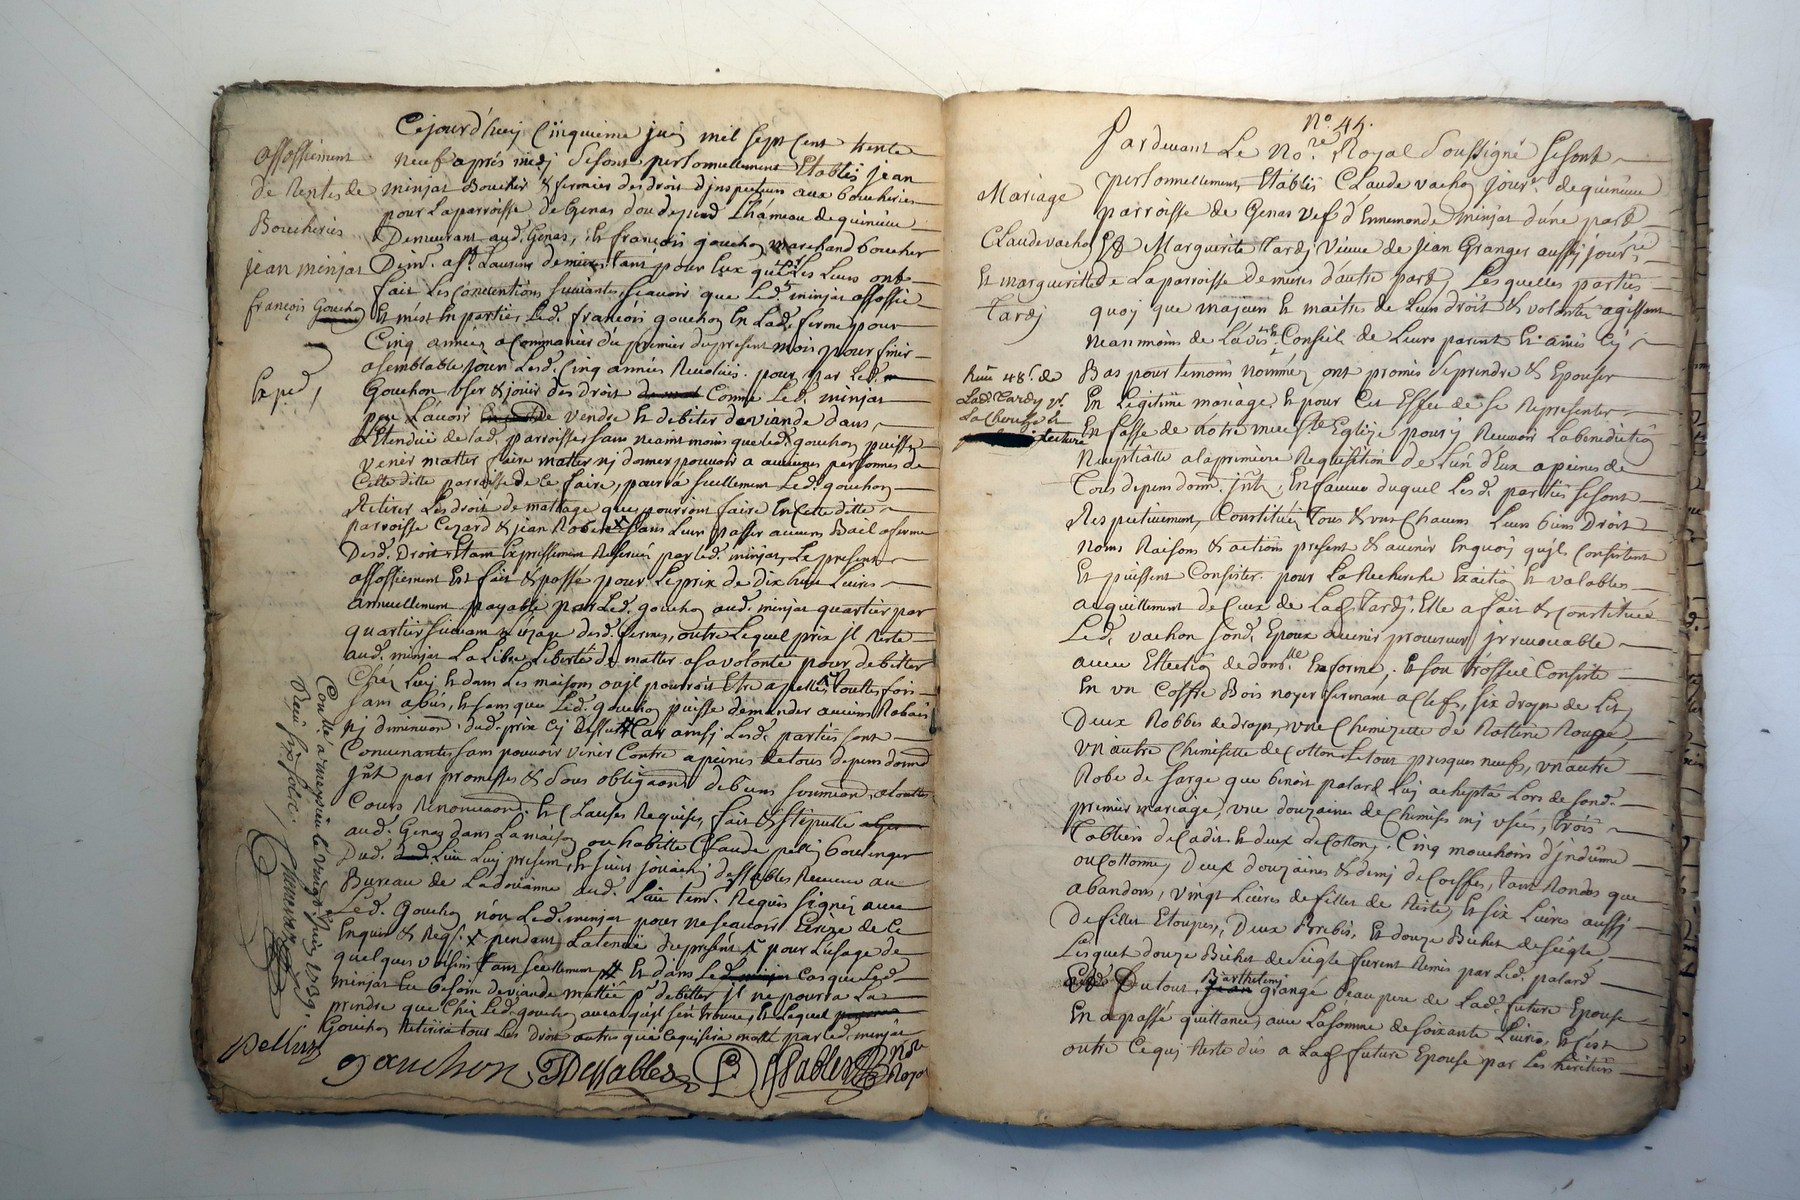 Cejourd'huy Cinquieme juin mil sept cent trente
neuf après midj se sont personnellement Etablis jean
minjat Boucher & fermier des droit d'jnspecteurs aux boucheries
pour La parroisse de Genas du Lhameau de quincieu
Demeurant aud. Genas, Et françois gouchon marchand boucher
tant pour Eux que Les Leurs ont
fait Les Conventions suivantes, scavoir que Led. minjat assossie
Et met En partie Led. françois gouchon En Lad. ferme pour
Cinq années a Commancer du premier du present mois pour finir
a semblable jour Lesd. Cinq années Revolues. pour par Led.
Gouchon user & jouir des droit Comme Led. minjat
peu L'avoir de vendre Et debiter de viande dans
L'Etendüe de lad. parroisse sans neantmoins que led. gouchon puisse
venir matter faire matter nj donner pouvoir a aucunes personnes de
Cette ditte parroisse de Ce faire, pourra seullement Led. gouchon
Retirer Les droit de mattage que pourront faire En Cette ditte
parroisse Cezard & jean sans Leur passer aucuns Bail a ferme
Desd. Droit Etant Expressement Reservés par led. minjat, Le present
assossiement Est fait & passé pour Le prix de dix huit Livres
annuellement payable par Led. gouchon aud. minjat quartier par
quartier suivant L'uzage desd. fermes, outre Lequel prix jl Reste
aud. minjat La Libre Liberté de matter a sa volonté pour debitter
Chez Luj Et dans Les maisons ou jl pourroit Etre apellé, touttes fois
sans abus, Et sans que Led. gouchon puisse demander aucuns Rabais
nj diminuon dud. prix Cy dessus Car ainsj Lesd. parties sont
Convenantes sans pouvoir venir Contre a peines de tous depens
par promesses & sous obligaons de biens a touttes
Cours Renonciaons. Et Clauses Requises, fait & stipullé
aud. Genas dans La maison ou habitte Claude pellin boulanger
Dud. Lieu Luj present, Et sieur Dessables Receveur au
Bureau de La doüanne aud. Lieu tem. Requis signés avec
Led. Gouchon non Led. minjat pour ne scavoir Ecrire de Ce
Enquis & Reqs. pendant La tenüe du present pour L'usage de
quelques voisins seullement Et dans Cas que Led.
minjat Eu besoin de viande mattée pr. debitter jl ne pourra La
prendre que Chez Led. gouchon autant qu'jl s'en trouve, Et Lequel
Gouchon Retirera tous Les Droit autres que Ce qui sera matté par led. minjat
Pellin gauchon Dessables Dessables Nore Royal
assossiement
de Rentes de
Boucheries
jean minjat
françois Gouchon
Exped
Contllé a meyzieu le vingt juin 1739.
Reçu six solz.
No. 45.
Pardevant Le Nore. Royal soussigné se sont
personnellement Etablis Claude vachon jour. de quincieu
parroisse de Genas vef d'Ennemonde minjat d'une part
Et Marguerite Tardj vieuve de jean Granger aussj jourre.
de La parroisse de mures d'autre part, Lesquelles parties
quoj que majeurs Et maitres de Leurs droit & volontés agissant
neanmoins de L'avis Et Conseil de Leurs parent Et amis Cy
Bas pour temoins nommés ont promis se prendre & Epouser
En Legitime mariage, Et pour Cet Effet de se Representer
En fasse de notre mere ste. Eglize pour y Recevoir La benediction
Nuptialle a la premiere Requisition de L'un d'Eux a peines de
Tous depens, En faveur duquel Lesd. parties se sont
Respectivement Constitués Tous & uns Chacuns Leurs biens Droit
Noms Raisons & actions present & avenir En quoj qu'jls Consistent
Et puissent Consister. pour La Recherche Exaction Et valables
acquittement de Ceux de Lad. Tardj. Elle a fait & Constitué
Led. vachon sond. Epoux avenir procureur jrrevocable
avec Ellection de domlle En forme, Et son trossel Consiste
En un Coffre Bois noyer fermant a Clefs, six drops de Lit,
Deux Robbes de drap, une Chemizette de Rattine Rouge,
Un autre Chemisette de Cotton Le tout presques neufs, un autre
Robe de sarge que benoit palard Luj achepta Lors de sond.
premier mariage, une douzaine de Chemises mj usées, trois
Tabliers de Cadis Et deux de Cotton, Cinq mouchoirs d'jndienne
ou Cottonne, Deux douzaines & demj de Coeffes, tant Rondes que
abandons, vingt Livres de fillet de Riste, Et six Livres aussj
De fillet Etoupes, Deux Brebis, Et douze Bichet de seigle,
Lesquel douze Bichet de seigle furent Remis par Led. palard
Du tout Barthelemj grangé Beau pere de Lad. future Epouse
En a passé quittance, avec La somme de soixante Livres, Et C'est
outre Ce qui Reste dus a Lad. future Epouse par Les heritiers
Mariage
Claude vachon
Et marguerite
Tardj
Reçu 48s. de
Lad. Tardy pr.